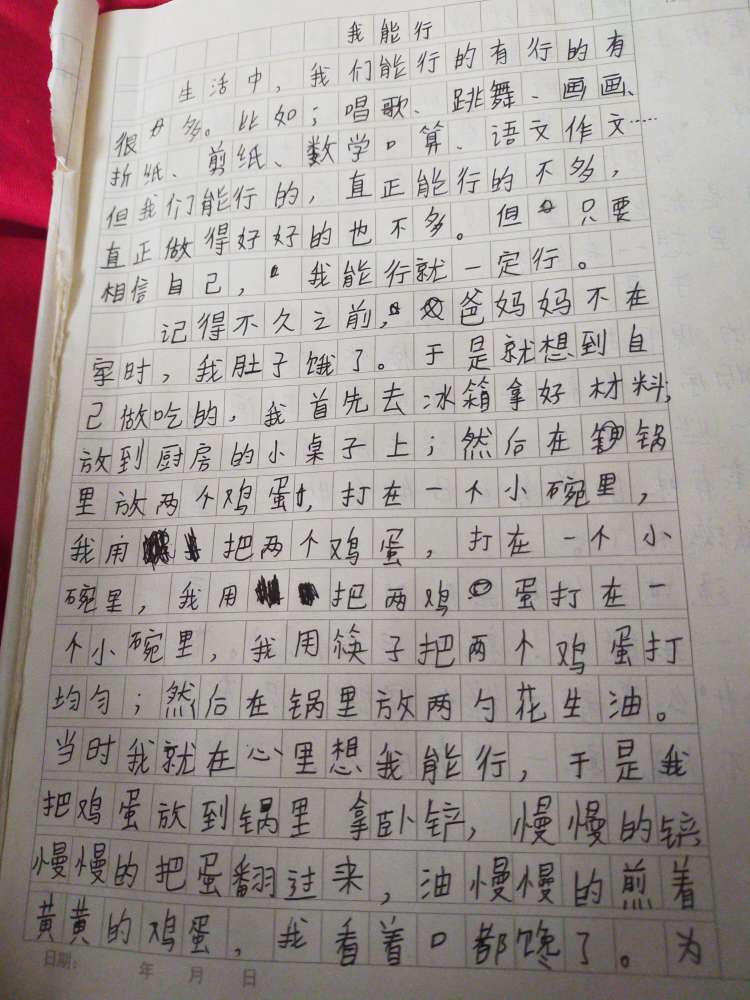 我能行
生活中，我们能行的有行的有
很多。比如；唱歌、跳舞、画画、
折纸、剪纸、数学口算、语文作文……
但我们能行的，直正能行的不多，
直正做得好好的也不多。但只要
相信自己，我能行就一定行。
记得不久之前，爸妈妈不在
家时，我肚子饿了。于是就想到自
己做吃的，我首先去冰箱拿好材料，
放到厨房的小桌子上；然后在锅
里放两个鸡蛋，打在一个小碗里，
我用把两个鸡蛋，打在一个小
碗里，我用把两鸡蛋打在一
个小碗里，我用筷子把两个鸡蛋打
均匀；然后在锅里放两勺花生油。
当时我就在心里想我能行，于是我
把鸡蛋放到锅里 拿卧铲，慢慢的铲
慢慢的把蛋翻过来，油慢慢的煎着
黄黄的鸡蛋，我看着口都馋了。为
日期： 年 月 日